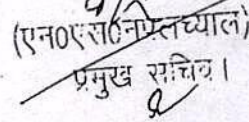 (एन०एस०नपलच्याल)
प्रमुख सचिव।